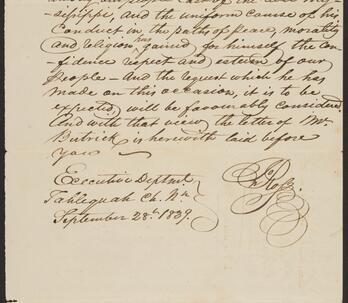 among our people East of the said Mis-
sissippi, and the uniform course of his
Conduct in the paths of Peace, morality
and religion has gained for himself the con-
fidence respect and esteem of our
People – And the request which he has
made on this occasion, it is to be
expected, will be favourably considered.
And with that view the letter of Mr.
Butrick is herewith laid before
you –
Executive Deptmt.
Tahlequah Ch. Nn.
September 28th. 1839.
Jno Ross